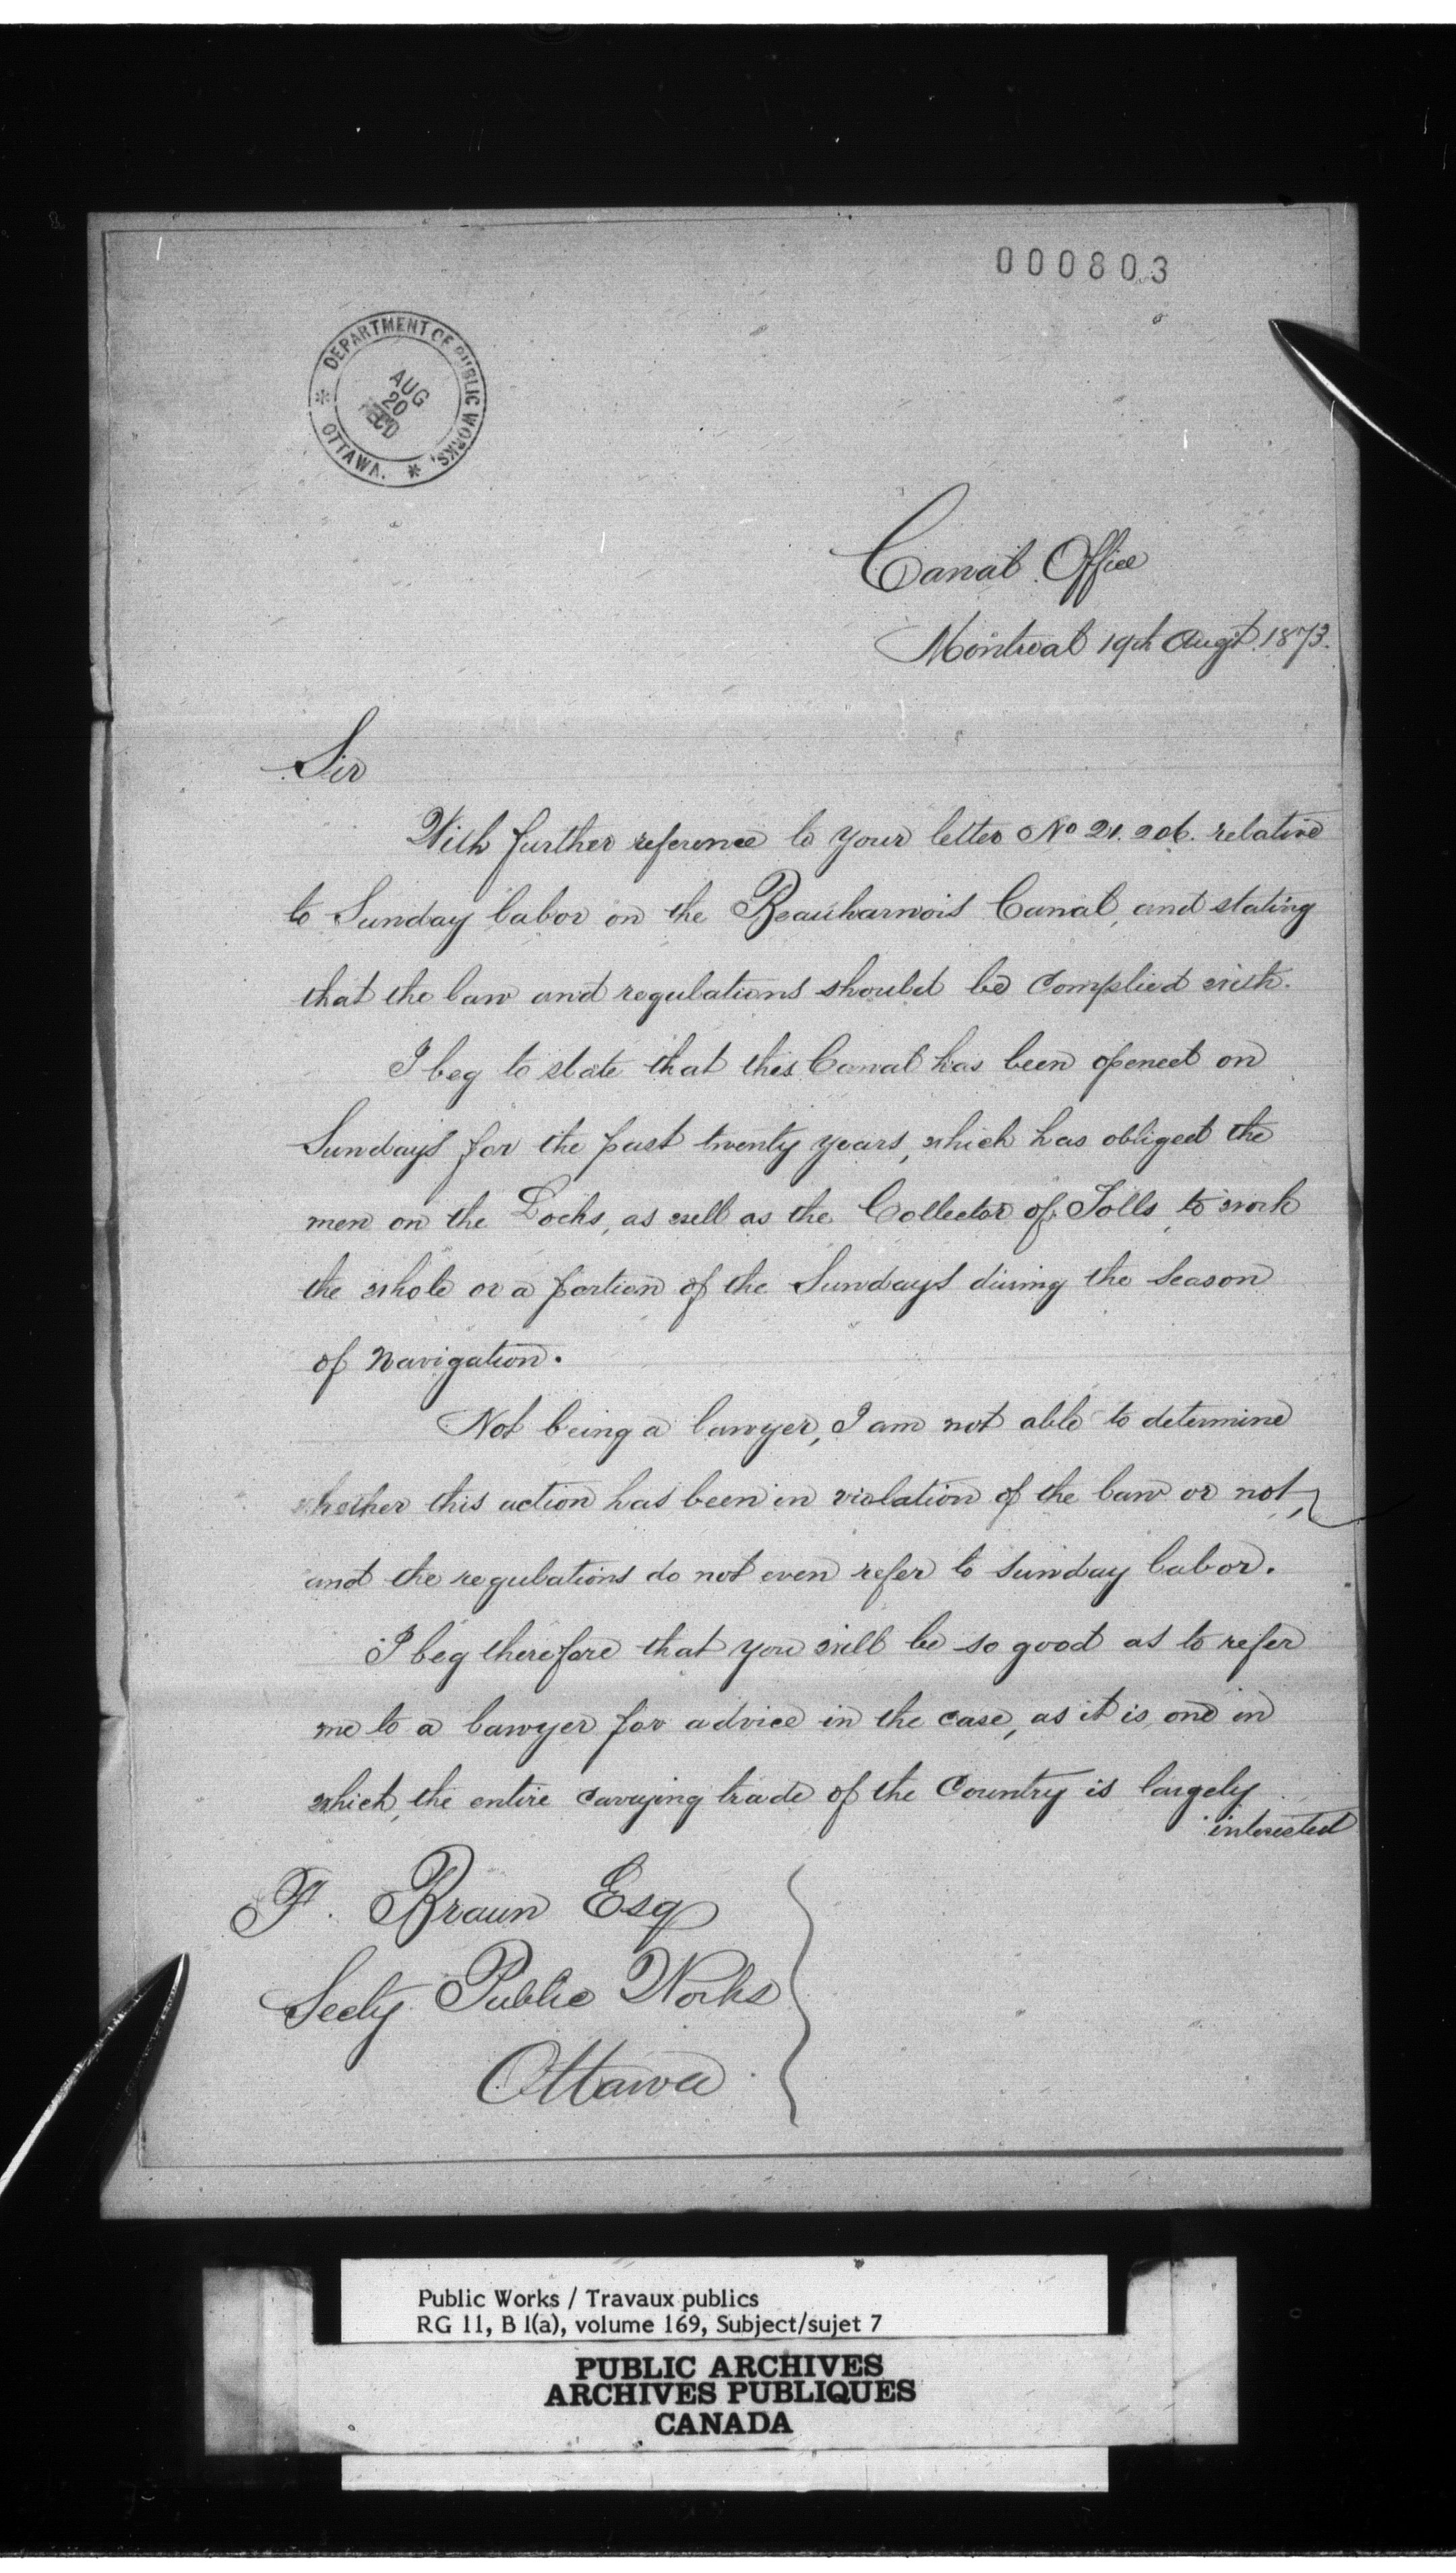 000803
DEPARTMENT OF PUBLIC WORKS,
AUG
20
REC'D
OTTAWA.
Canal Office
Montreal 19th Augt. 1873.
Sir
With further reference to your letter No 21.206. relative
to Sunday labor on the Beauharnois Canal, and stating
that the law and regulations should be complied with.
I beg to state that this Canal has been opened on
Sundays for the past twenty years, which has obliged the
men on the Locks, as well as the Collector of Tolls, to work
the whole or a portion of the Sundays during the season
of Navigation.
Not being a lawyer, I am not able to determine
whether this action has been in violation of the law or not,
and the regulations do not even refer to Sunday labor.
I beg therefore that you will be so good as to refer
me to a lawyer for advice in the case, as it is one in
which, the entire carrying trade of the Country is largely
interested
F. Braun Esq
Secty Public Works
Ottawa
Public Works / Travaux publics
RG 11, B 1(a), volume 169, Subject/sujet 7
PUBLIC ARCHIVES
ARCHIVES PUBLIQUES
CANADA